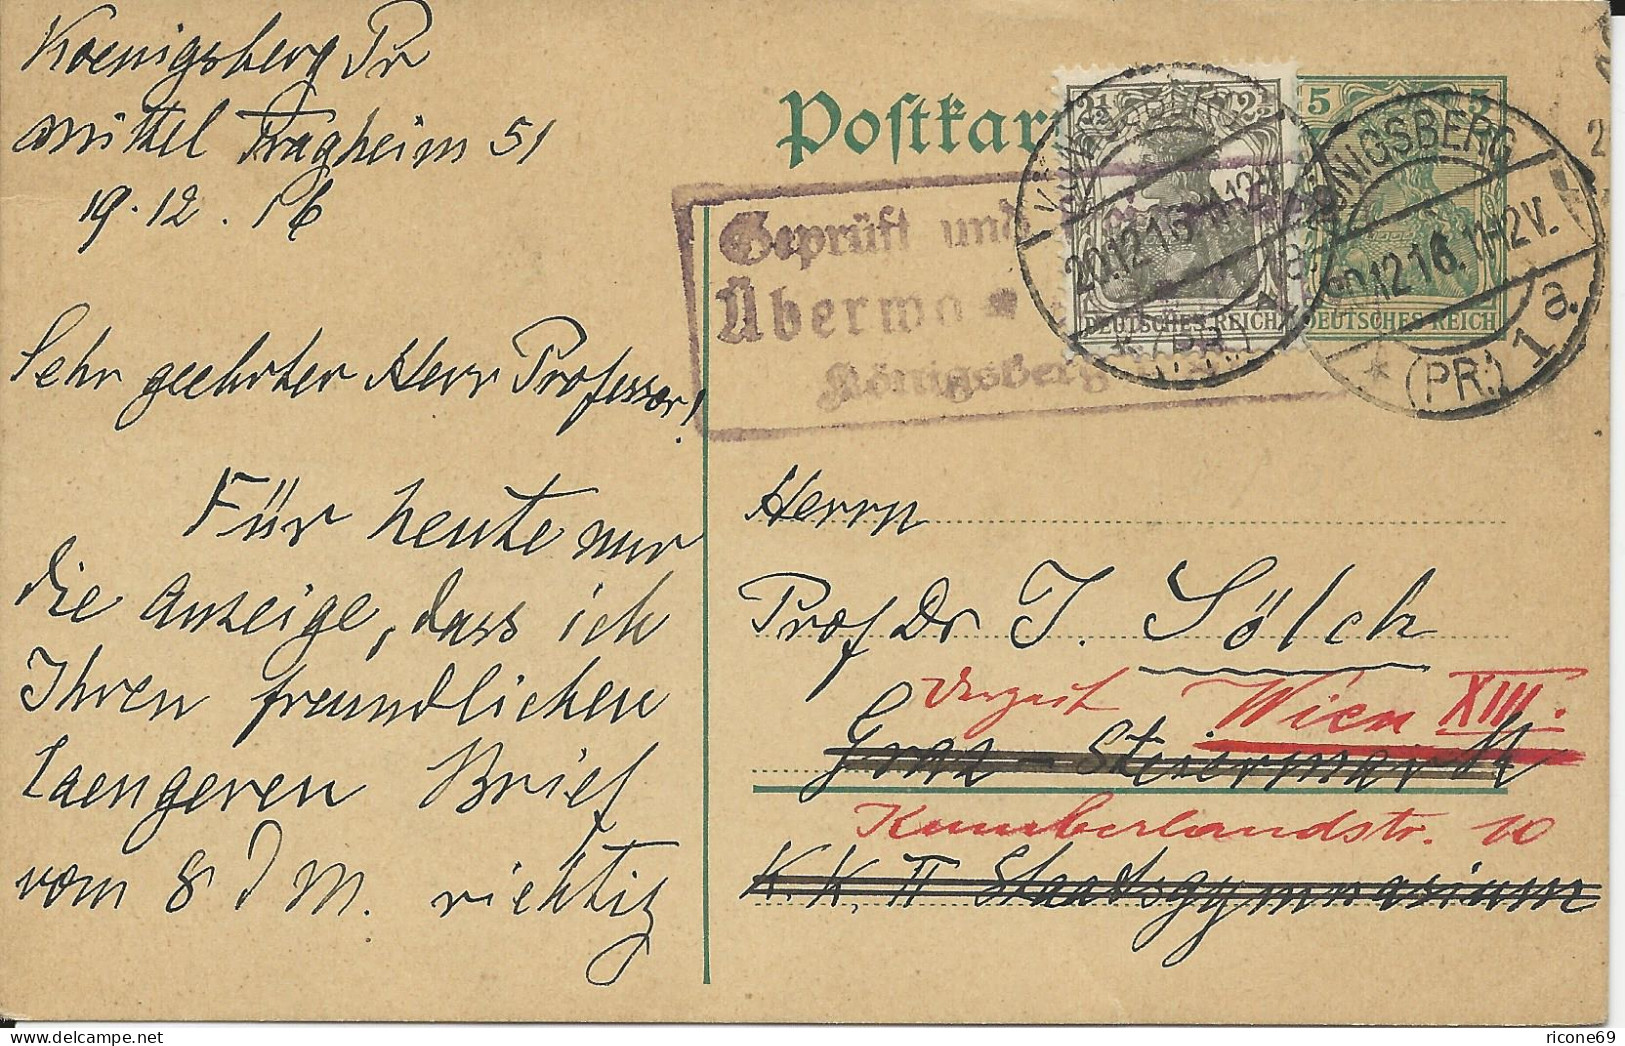 Koenigsberg Pr
Mittel Tragheim 51
19.12.16
Sehr geehrter Herr Professor!
Für heute nur
die Anzeige, dass ich
Ihren freundlichen
laengeren Brief
vom 8 d M. richtig
Postkar
Geprüft und
Überwa
Königsberg
2½ 2½
DEUTSCHES REICH
5 5
DEUTSCHES REICH
KÖNIGSBERG
20.12.16. 11-12V.
* (PR.) 1 a.
KÖNIGSBERG
20.12.16. 11-12V.
* (PR.) 1 a.
Herrn
Prof Dr J. Sölch
Derzeit Wien XIII.
Graz - Steiermark
Kumberlandstr. 10
K. K. II Staatsgymnasium
ricone69